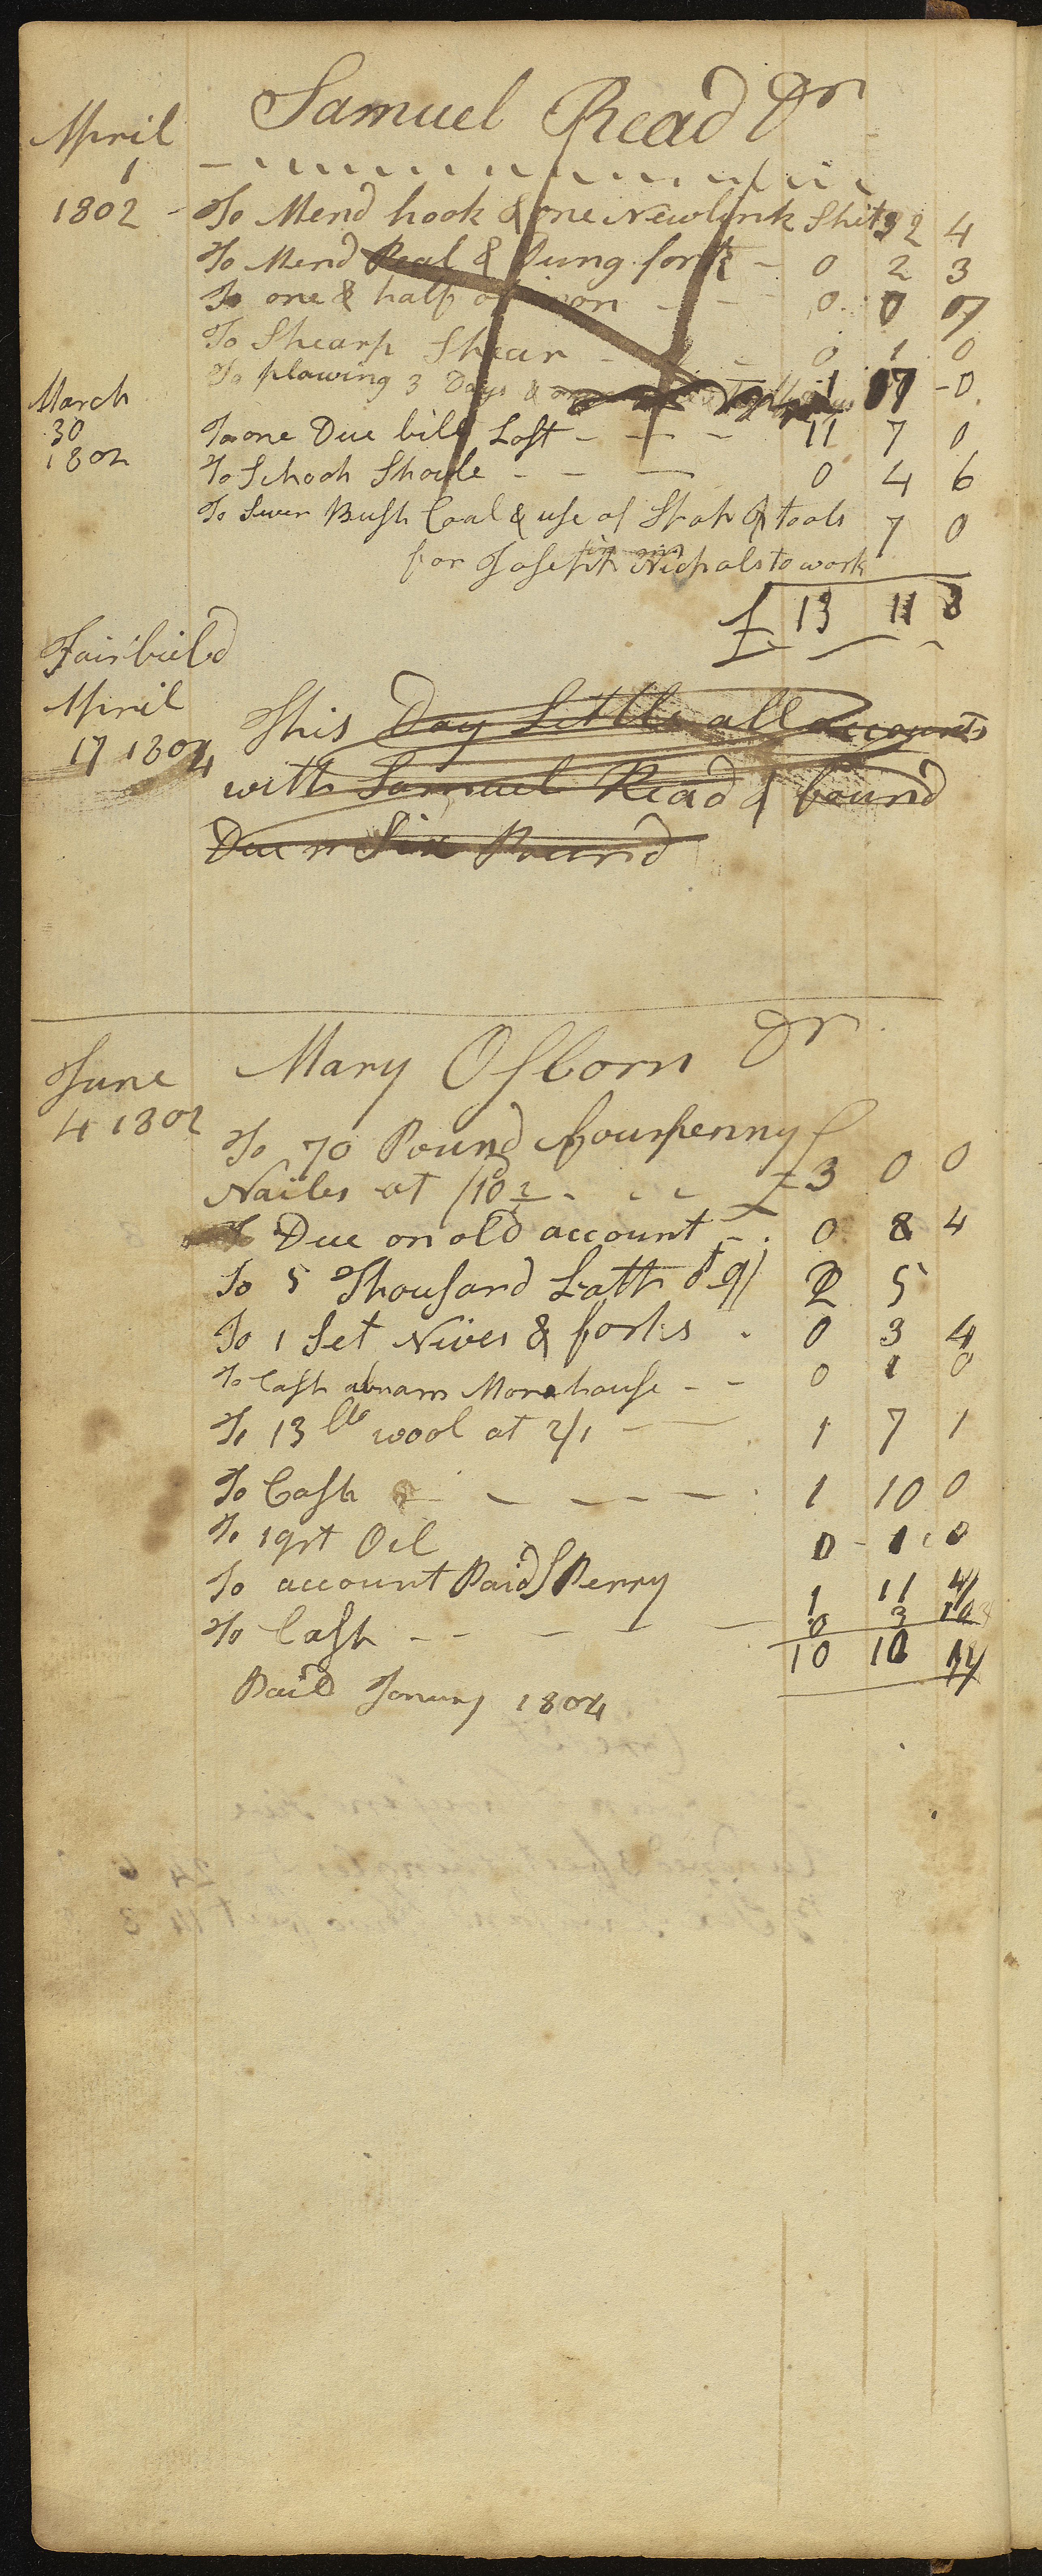 Samuel Read Dr
April
1
1802 - To Mend hook & one New link Shits 2 4
To Mend Peal & Dung fork - 0 2 3
To one & half of iron - - - 0 0 07
To Shearp Shear - - - 0 1 0
To plowing 3 Days & 1 17 - 0
March
30
1802
To one Due bill Lost - - - 11 7 0
To School Shovle - - - 0 4 6
To Bush Coal & use of Shop & tools 7 0
for Joseph Nichols to work
£ 13 11 8
Fairfield
April
17 1804
This Day Settle all accounts
with Samuel Read & found
Due Six Pound
Mary Osborn Dr
June
4 1802
To 70 Pound fourpenny
Nailes at /10 1/2 - - - £ 3 0 0
To Due on old account - . 0 8 4
To 5 Thousand Lath at 9/ 2 5
To 1 Set Nives & forks . 0 3 4
To Cash abram Morehouse - - 0 1 0
To 13 lb wool at 2/1 - - 1 7 1
To Cash - - - - - 1 10 0
To 1 qrt Oil 0 - 1 0
To account Paid S Perry 1 11 4
To Cash - - - - - 0 3
10 10
Paid January 1804